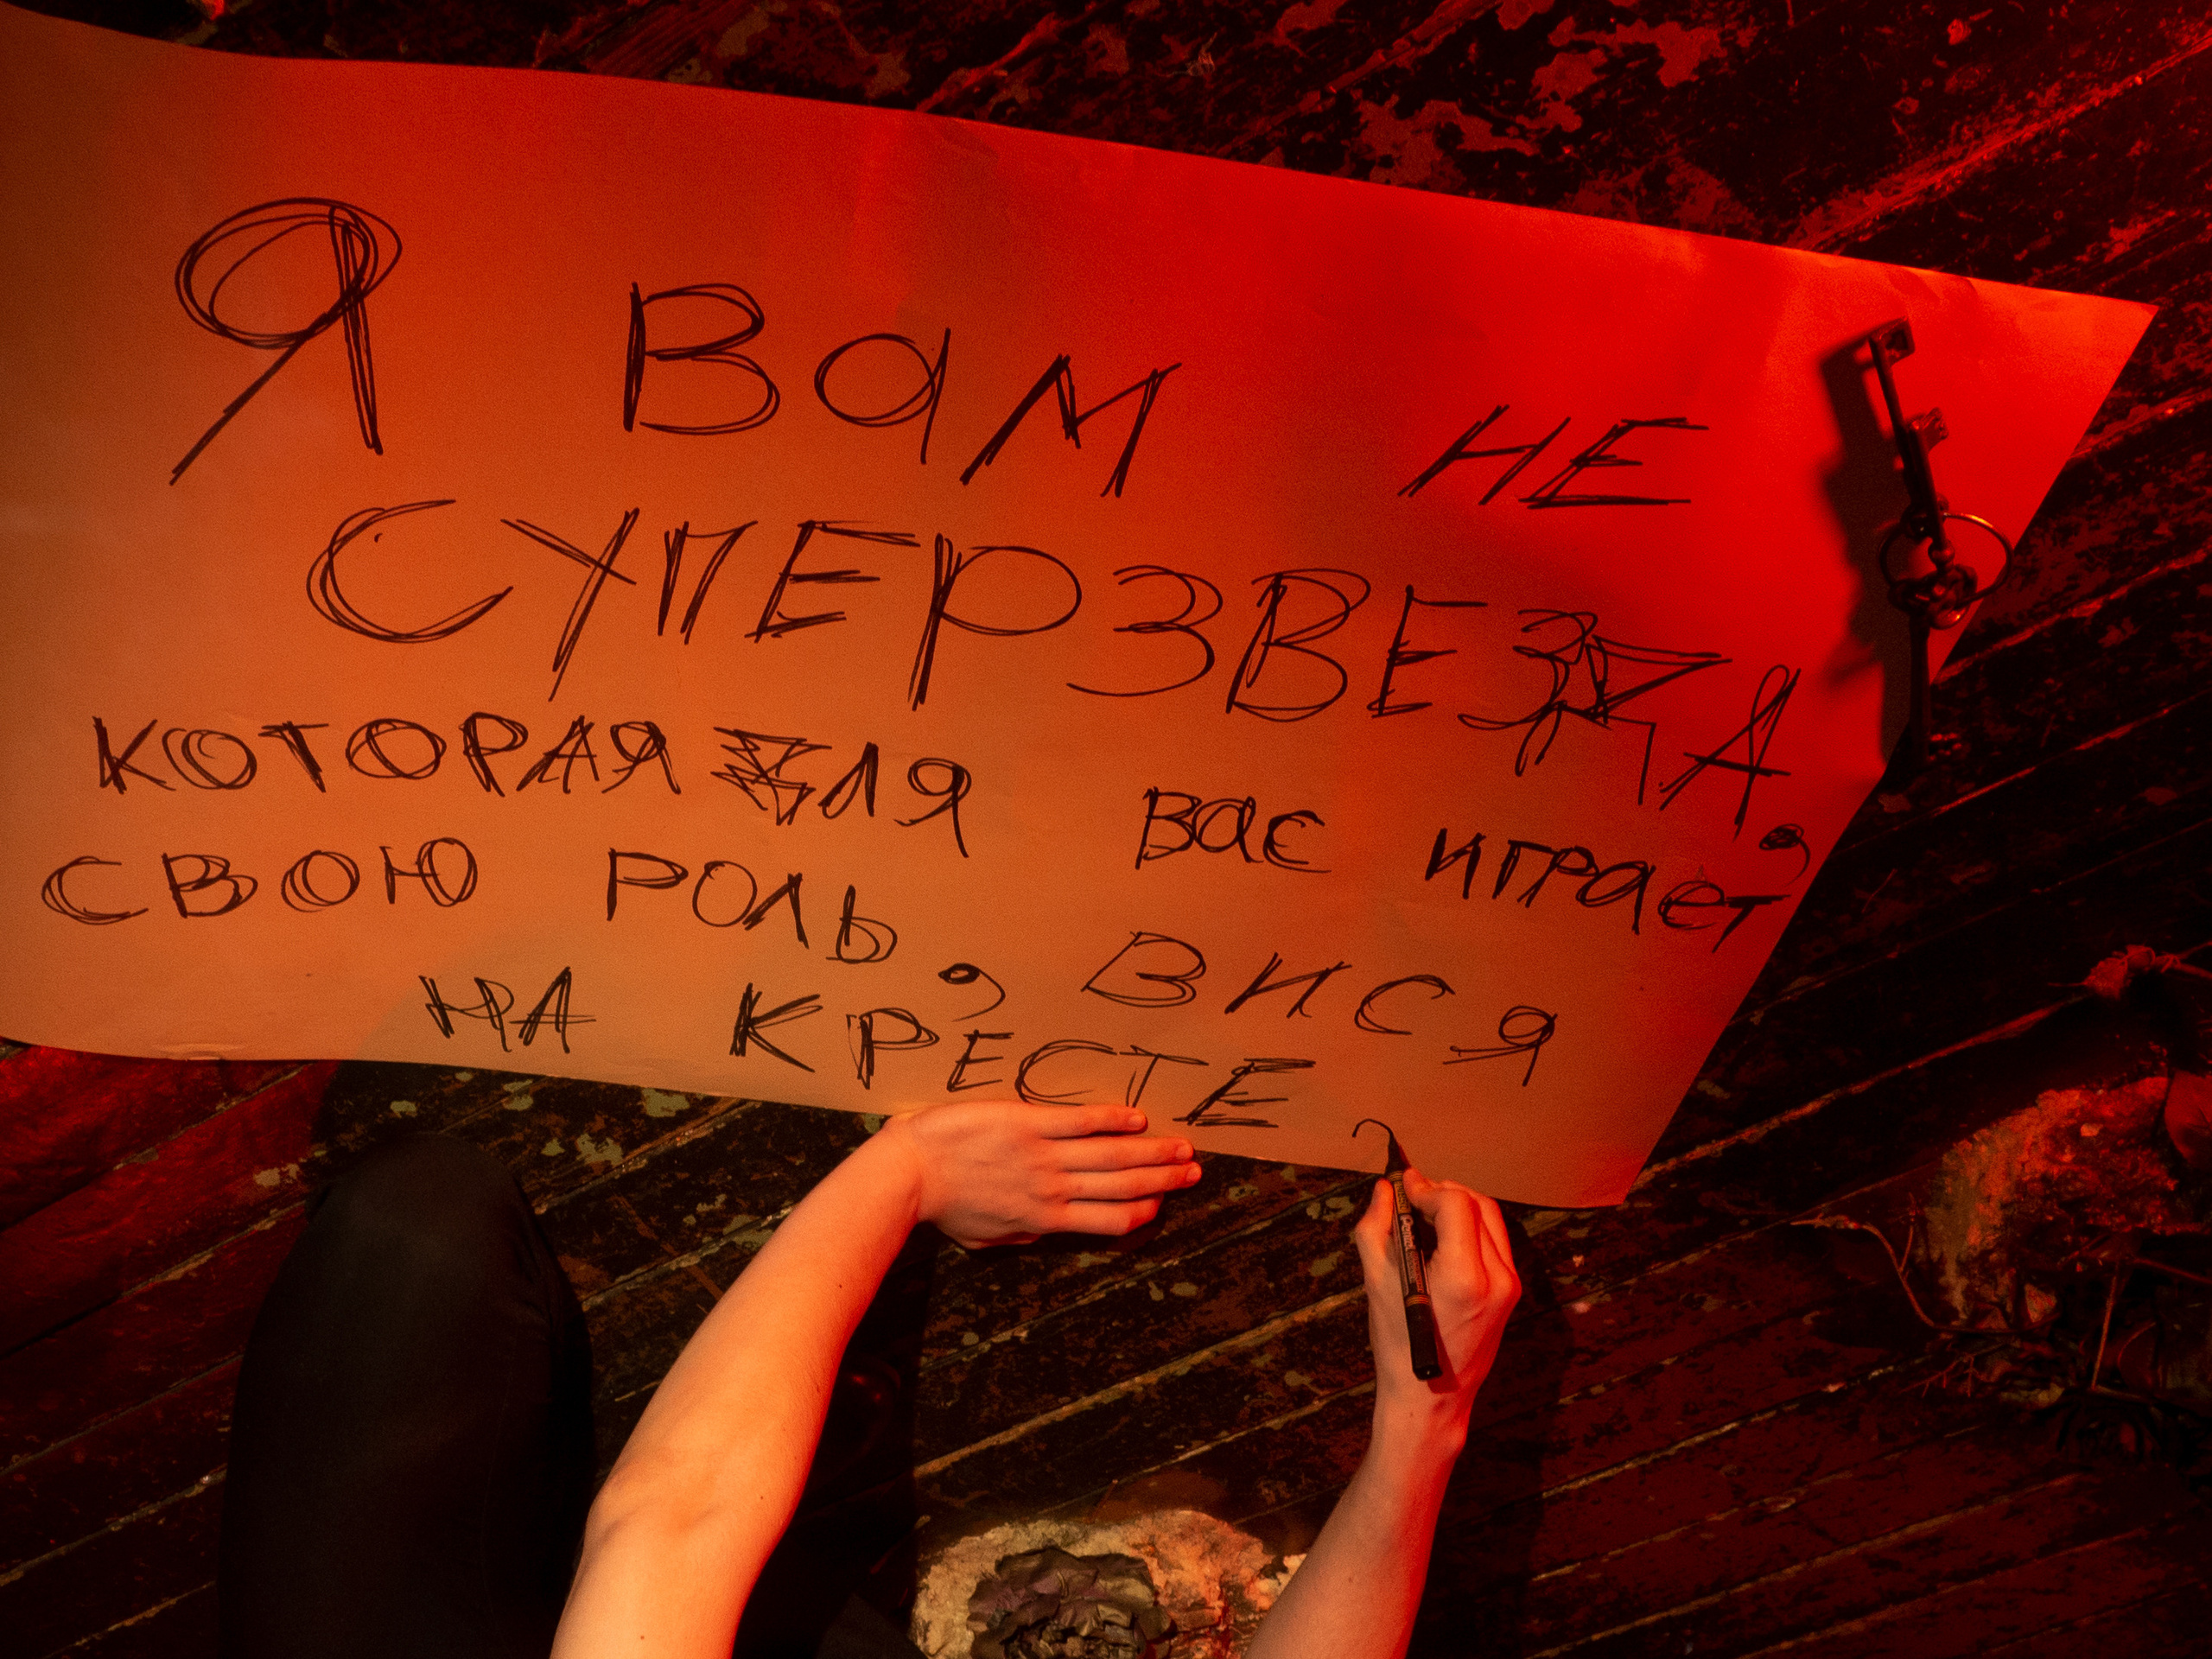 Я Вам НЕ
СУПЕРЗВЕЗДА,
КОТОРАЯ ДЛЯ Вас играет
СВОЮ РОЛЬ, ВИСЯ
НА КРЕСТЕ
Pentel